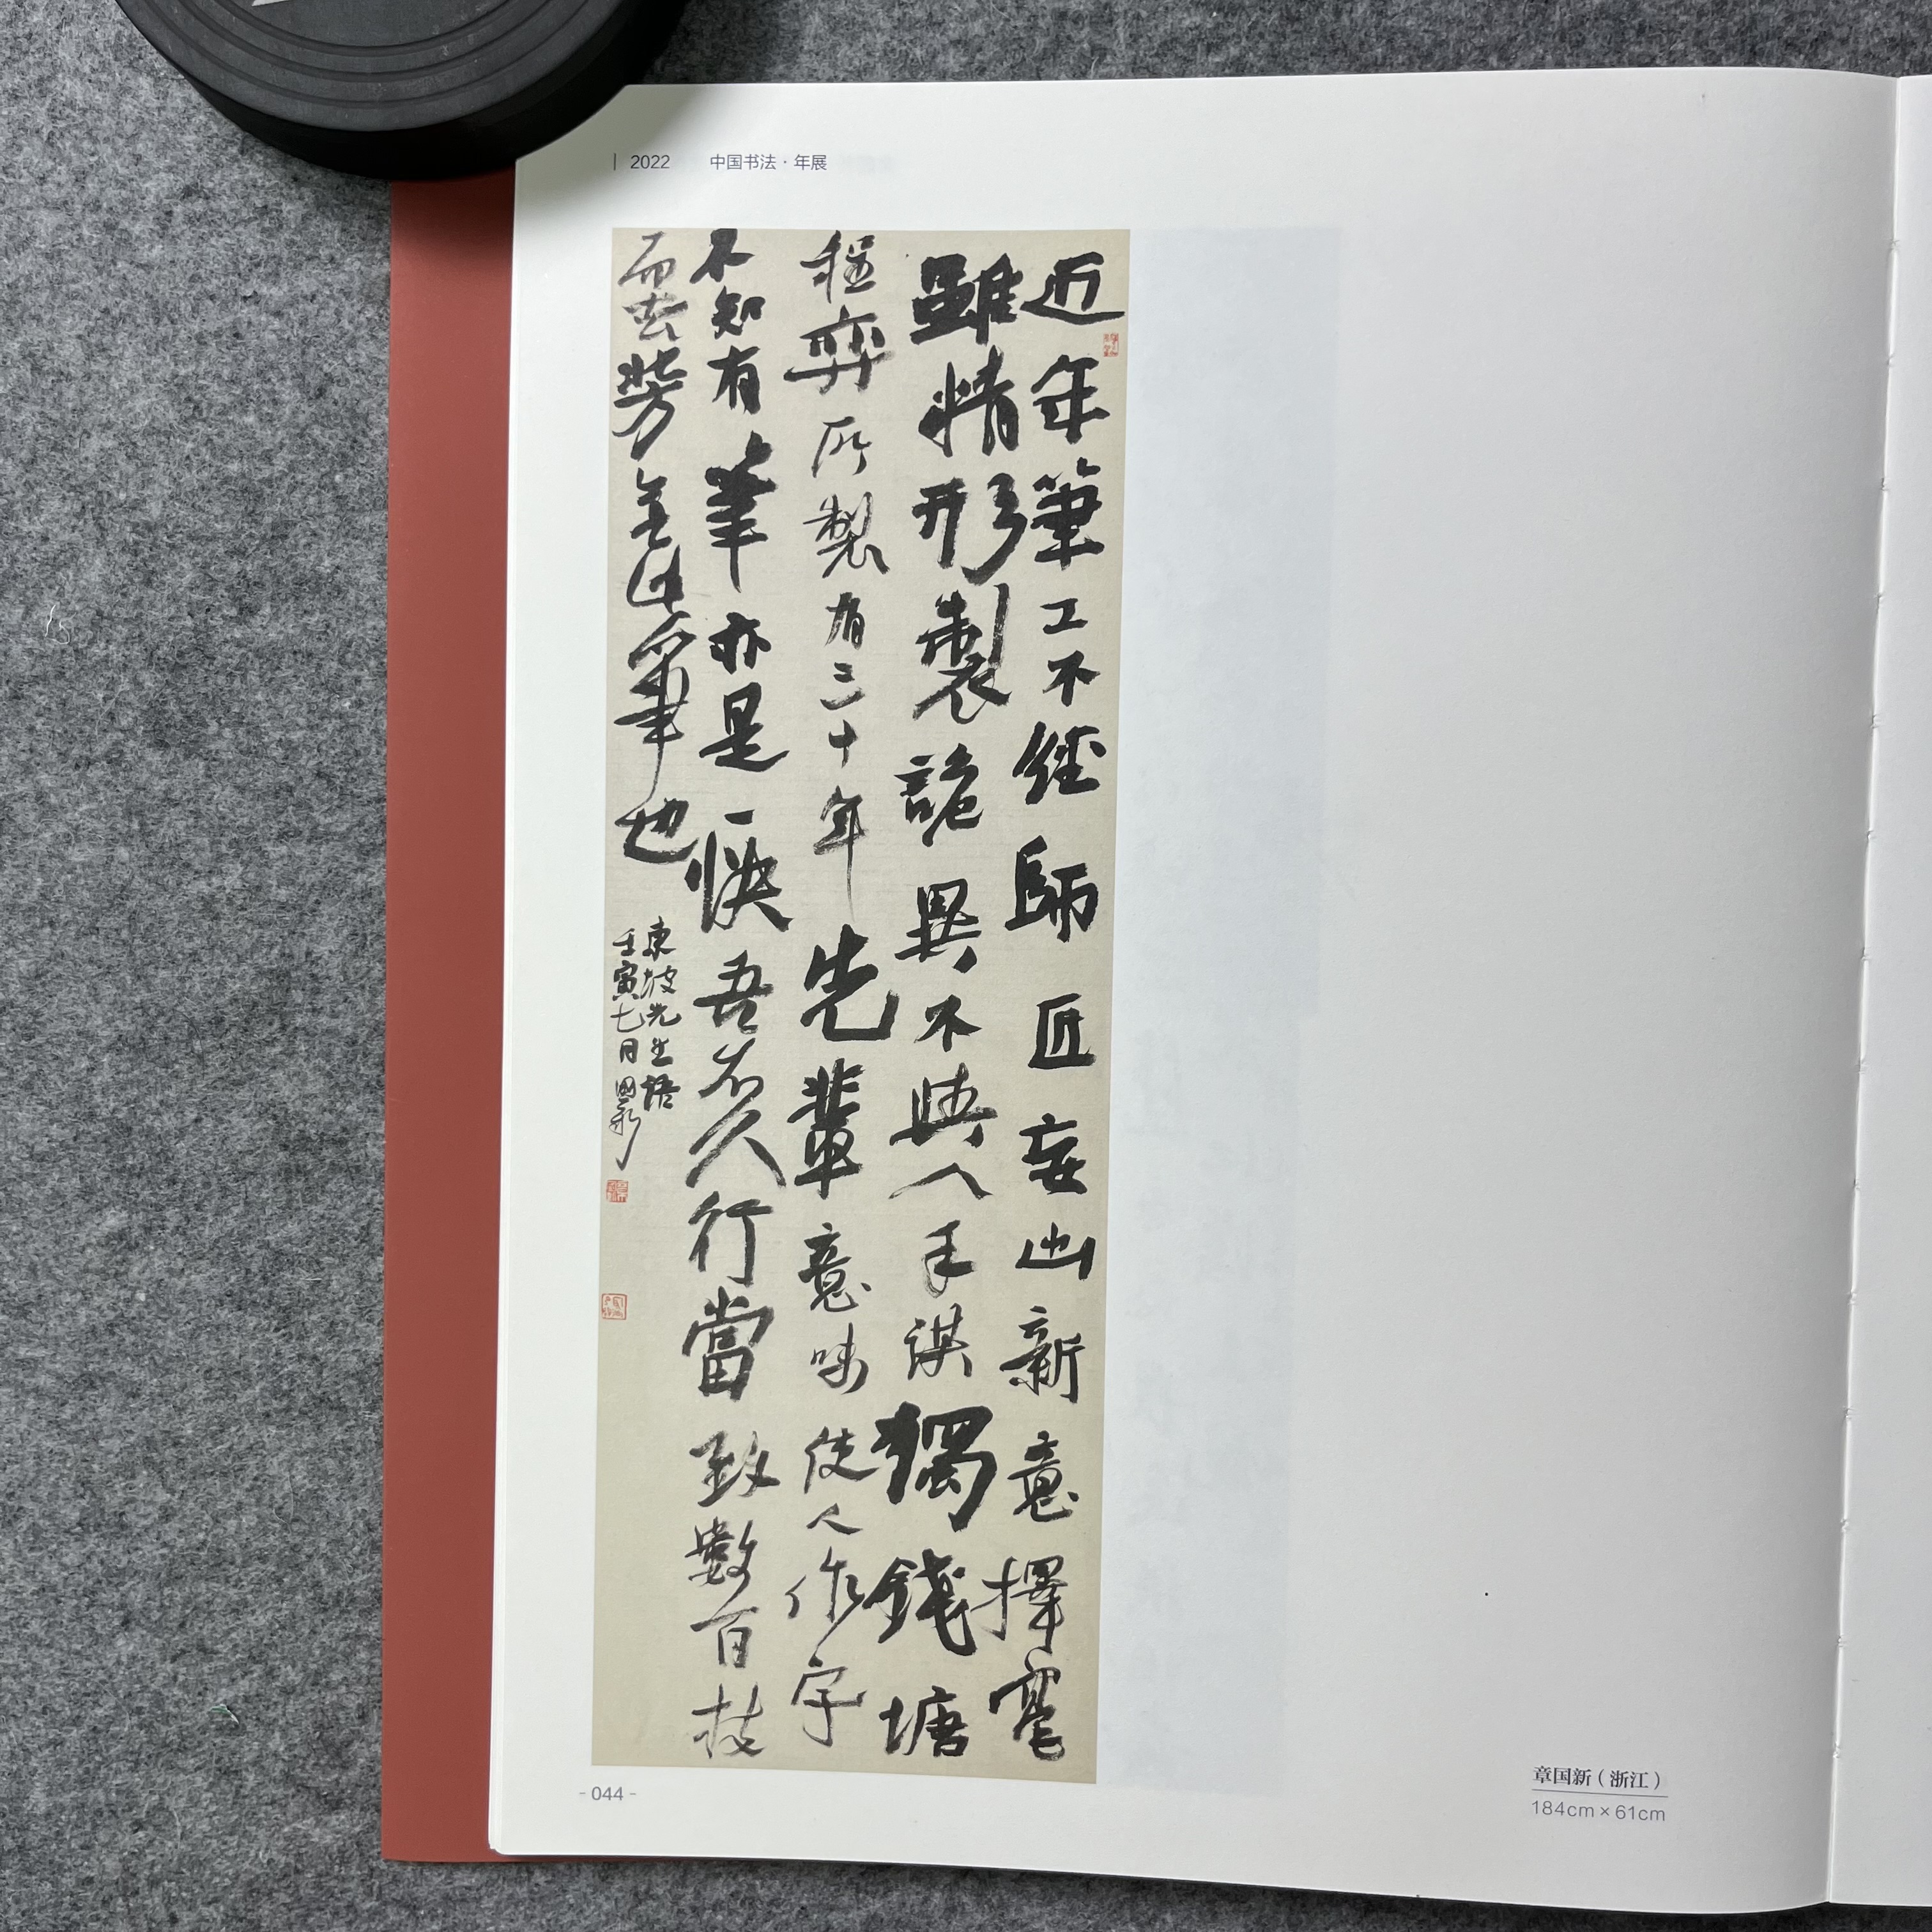 2022 中国书法·年展
近年筆工不經師匠妄出新意擇毫
雖精形製詭異不與人手謀獨錢塘
程弈所製有三十年先輩意味使人作字
不知有筆亦是一快吾不久行當致數百枝
而去北方無此筆也
東坡先生語
壬寅七月國新
章国新（浙江）
184cm×61cm
- 044 -